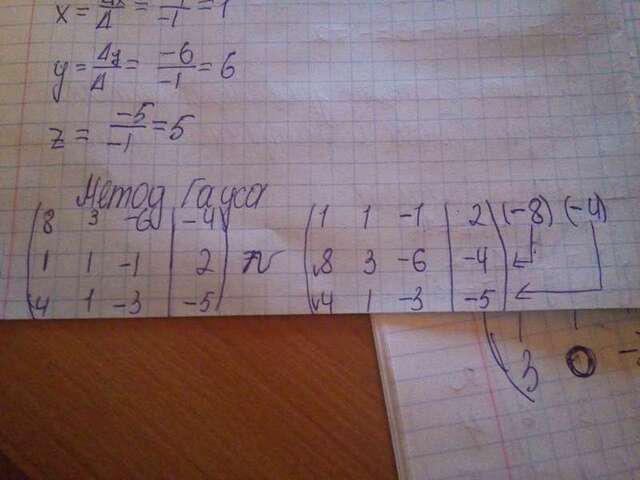 x = Δx/Δ = -1/-1 = 1
y = Δy/Δ = -6/-1 = 6
z = -5/-1 = 5
Метод Гауса
( 8 3 -6 | -4 ) ~ ( 1 1 -1 | 2 ) (-8) (-4)
( 1 1 -1 | 2 ) ( 8 3 -6 | -4 ) ←
( 4 1 -3 | -5 ) ( 4 1 -3 | -5 ) ←
3 0